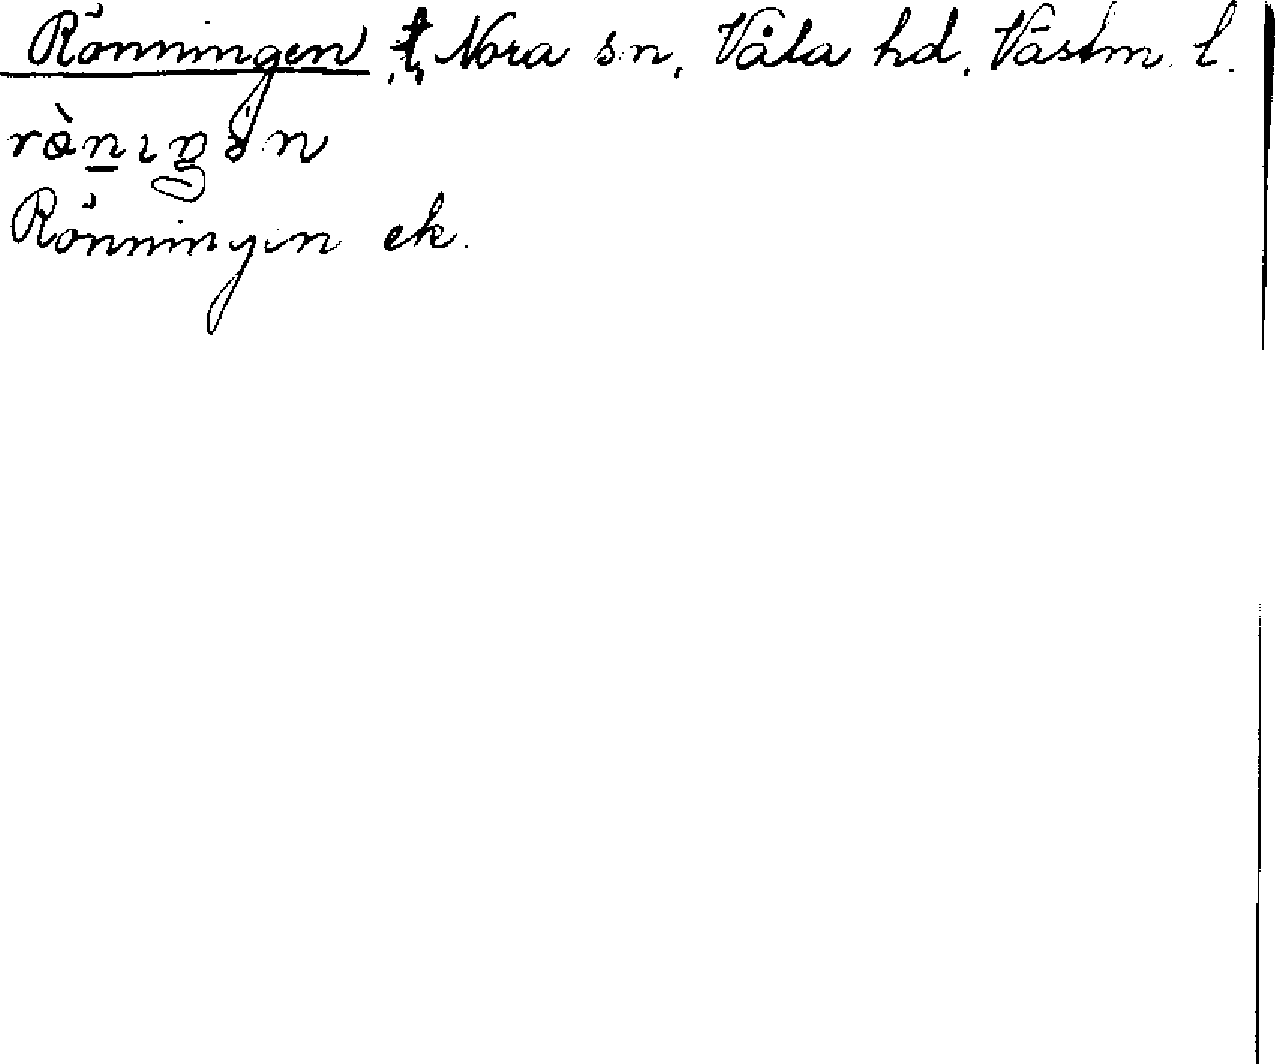 Rönningen t, Nora sn, Våla hd, Västm. l.
rὰn̲ıŋən
Rönningen ek.